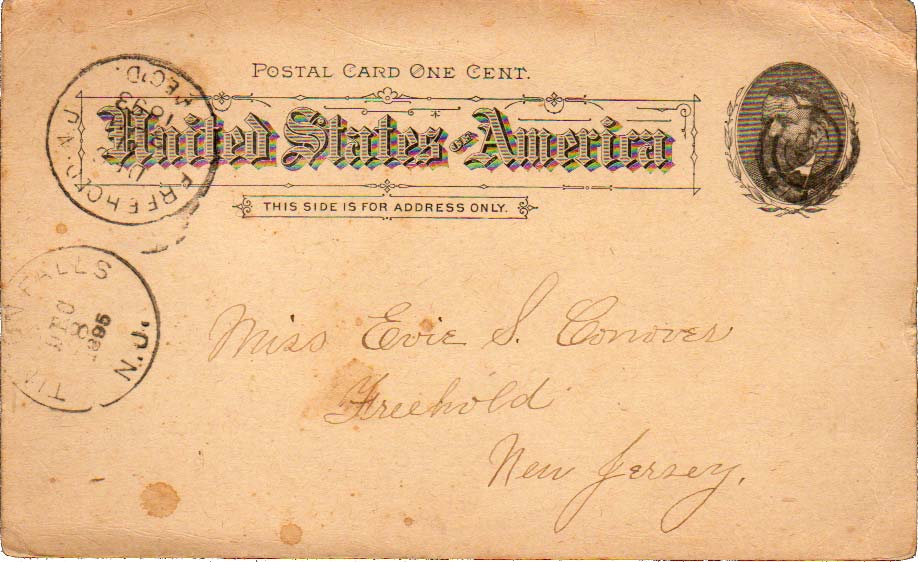 POSTAL CARD ONE CENT.
United States of America
THIS SIDE IS FOR ADDRESS ONLY.
FREEHOLD. N.J.
REC'D.
FALLS
N.J.
DEC
8
1895
Miss Evie S. Conover
Freehold
New Jersey.